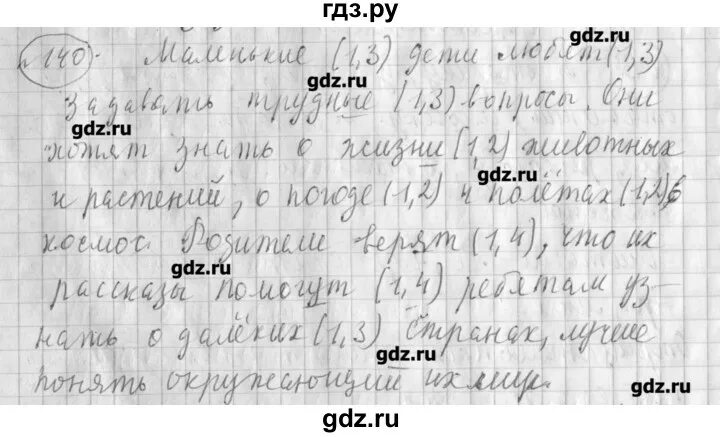 гдз.ру
140. Маленькие (1,3) дети любят (1,3)
gdz.ru
задавать трудные (1,3) вопросы. Они
gdz.ru
gdz.ru
хотят знать о жизни (1,2) животных
gdz.ru
и растений, о погоде (1,2) и полётах (1,2) в
космос. Родители верят (1,4), что их
gdz.ru
рассказы помогут (1,4) ребятам уз-
нать о далёких (1,3) странах, лучше
gdz.ru
понять окружающий их мир.
gdz.ru
gdz.ru